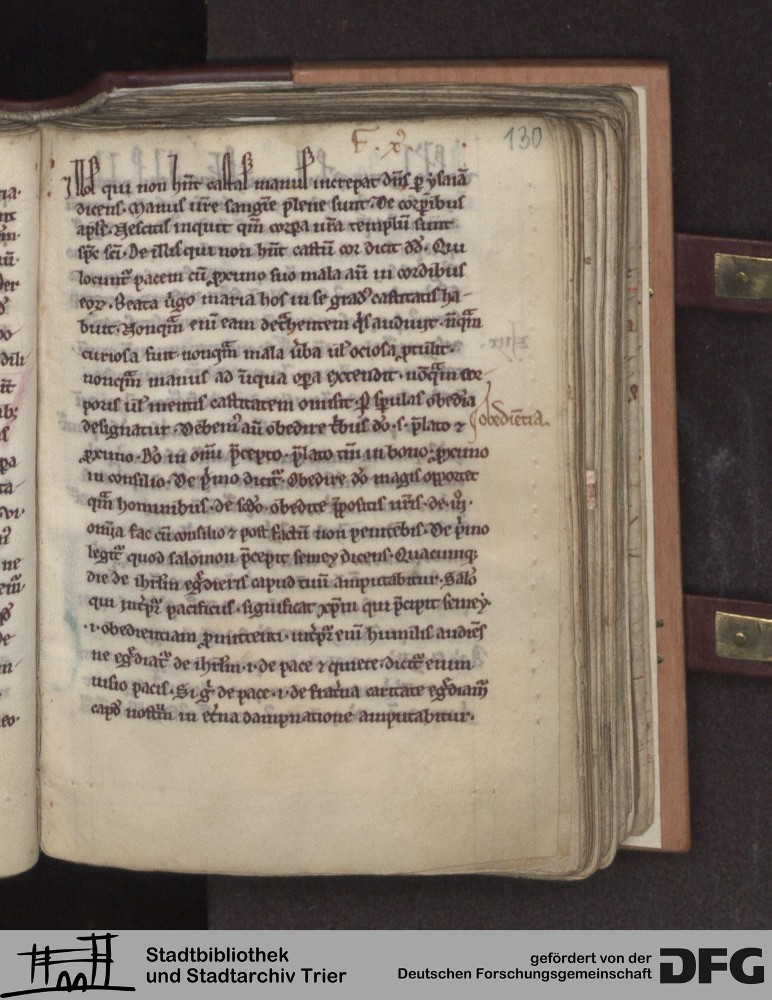 F. x
130
Illos qui non hn̄t castas manus increpat dn̄s p ysaiā
dicens. Manus ur̄e sangīe plene sunt. De corp̄ibus
apl̄s. Nescitis inquit qm̄ corpa ur̄a templū sunt
sp̄c sc̄i. De illis qui non hn̄t castū cor dicit dd̄. Qui
locunt̄ pacem cū pxīmo suo mala aū in cordibus
eoꝝ. Beata ūgo maria hos in se grad̄ castitatis ha-
buit. Nonqm̄ enī eam det̄hentem qs̄ audiuit. nūqm̄
curiosa fuit nonqm̄ mala ūba ul̄ ociosa ptulit.
nonqm̄ manus ad iniqua opa extendit. nōqm̄ cor-
poris ul̄ mentis castitatem omisit. P spatulas obedīa
designatur. Debem̄ aū obedire tb̄us dō. s. p̄lato ⁊
obediētia.
pxīmo. Dō in om̄i p̄cepto. p̄lato tm̄ in bono. pxīmo
in consilio. De p̄mo dicit̄. Obedire dō magis oportet
qm̄ hominibus. de sdō. obedite p̄positis ur̄is. de .iij.
om̄ia fac cū consilio ⁊ post factū non penitebis. De p̄mo
legit̄ quod salomon p̄cepit semey dicens. Quacumq;
die de ihrl̄m egd̄ieris capud tuū amputabitur. Salō
qui int̄pr̄ pacificus. significat xp̄m qui p̄cipit semey.
.i. obedientiam pmittenti. int̄pr̄ enī humilis audiēs
ne egd̄iat̄ de ihrl̄m .i. de pace ⁊ quiete. dicit̄ enim
uisio pacis. Si g̊ de pace .i. de frat̄na caritate egd̄iam̄
capd̄ nostrū in et̄na dampnatione amputabitur.
Stadtbibliothek
und Stadtarchiv Trier
gefördert von der
Deutschen Forschungsgemeinschaft
DFG